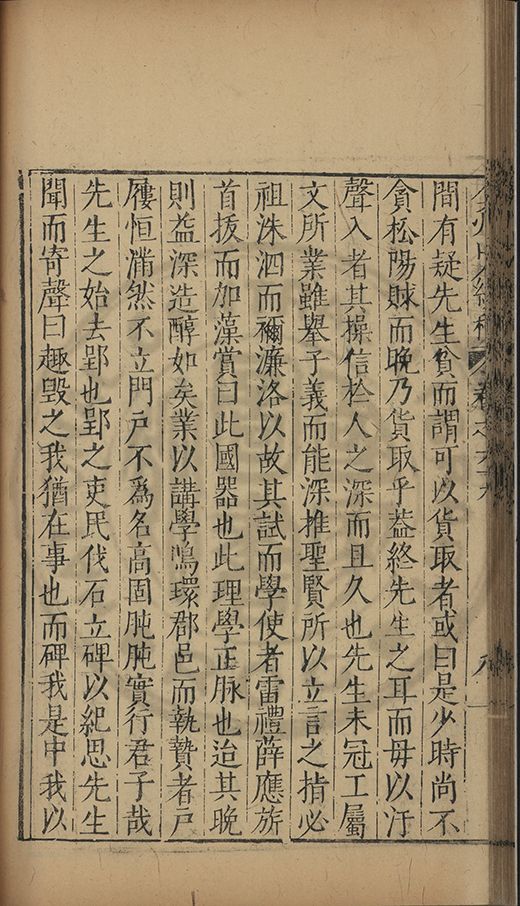 弇州山人續稿 卷之六十六 八
間有疑先生貧而謂可以貨取者或曰是少時尚不
貪松陽賕而晚乃貨取乎葢終先生之耳而毋以汙
聲入者其操信於人之深而且久也先生未冠工屬
文所業雖舉子義而能深推聖賢所以立言之指必
祖洙泗而禰濂洛以故其試而學使者雷禮薛應旂
首拔而加藻賞曰此國器也此理學正脉也迨其晚
則益深造醇如矣業以講學鳴環郡邑而執贄者戸
屨恒滿然不立門戸不爲名高固肫肫實行君子哉
先生之始去郢也郢之吏民伐石立碑以紀思先生
聞而寄聲曰趣毀之我猶在事也而碑我是中我以